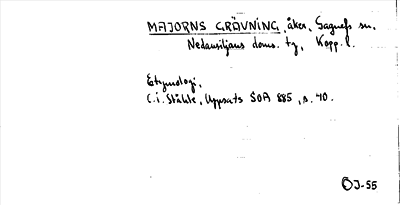 MAJORNS GRÄVNING, åker, Gagnefs sn.
Nedansiljans doms. tg, Kopp. l.
Etymologi,
C.i. Ståhle, Uppsats SOA 885, s. 40.
ÖJ-55